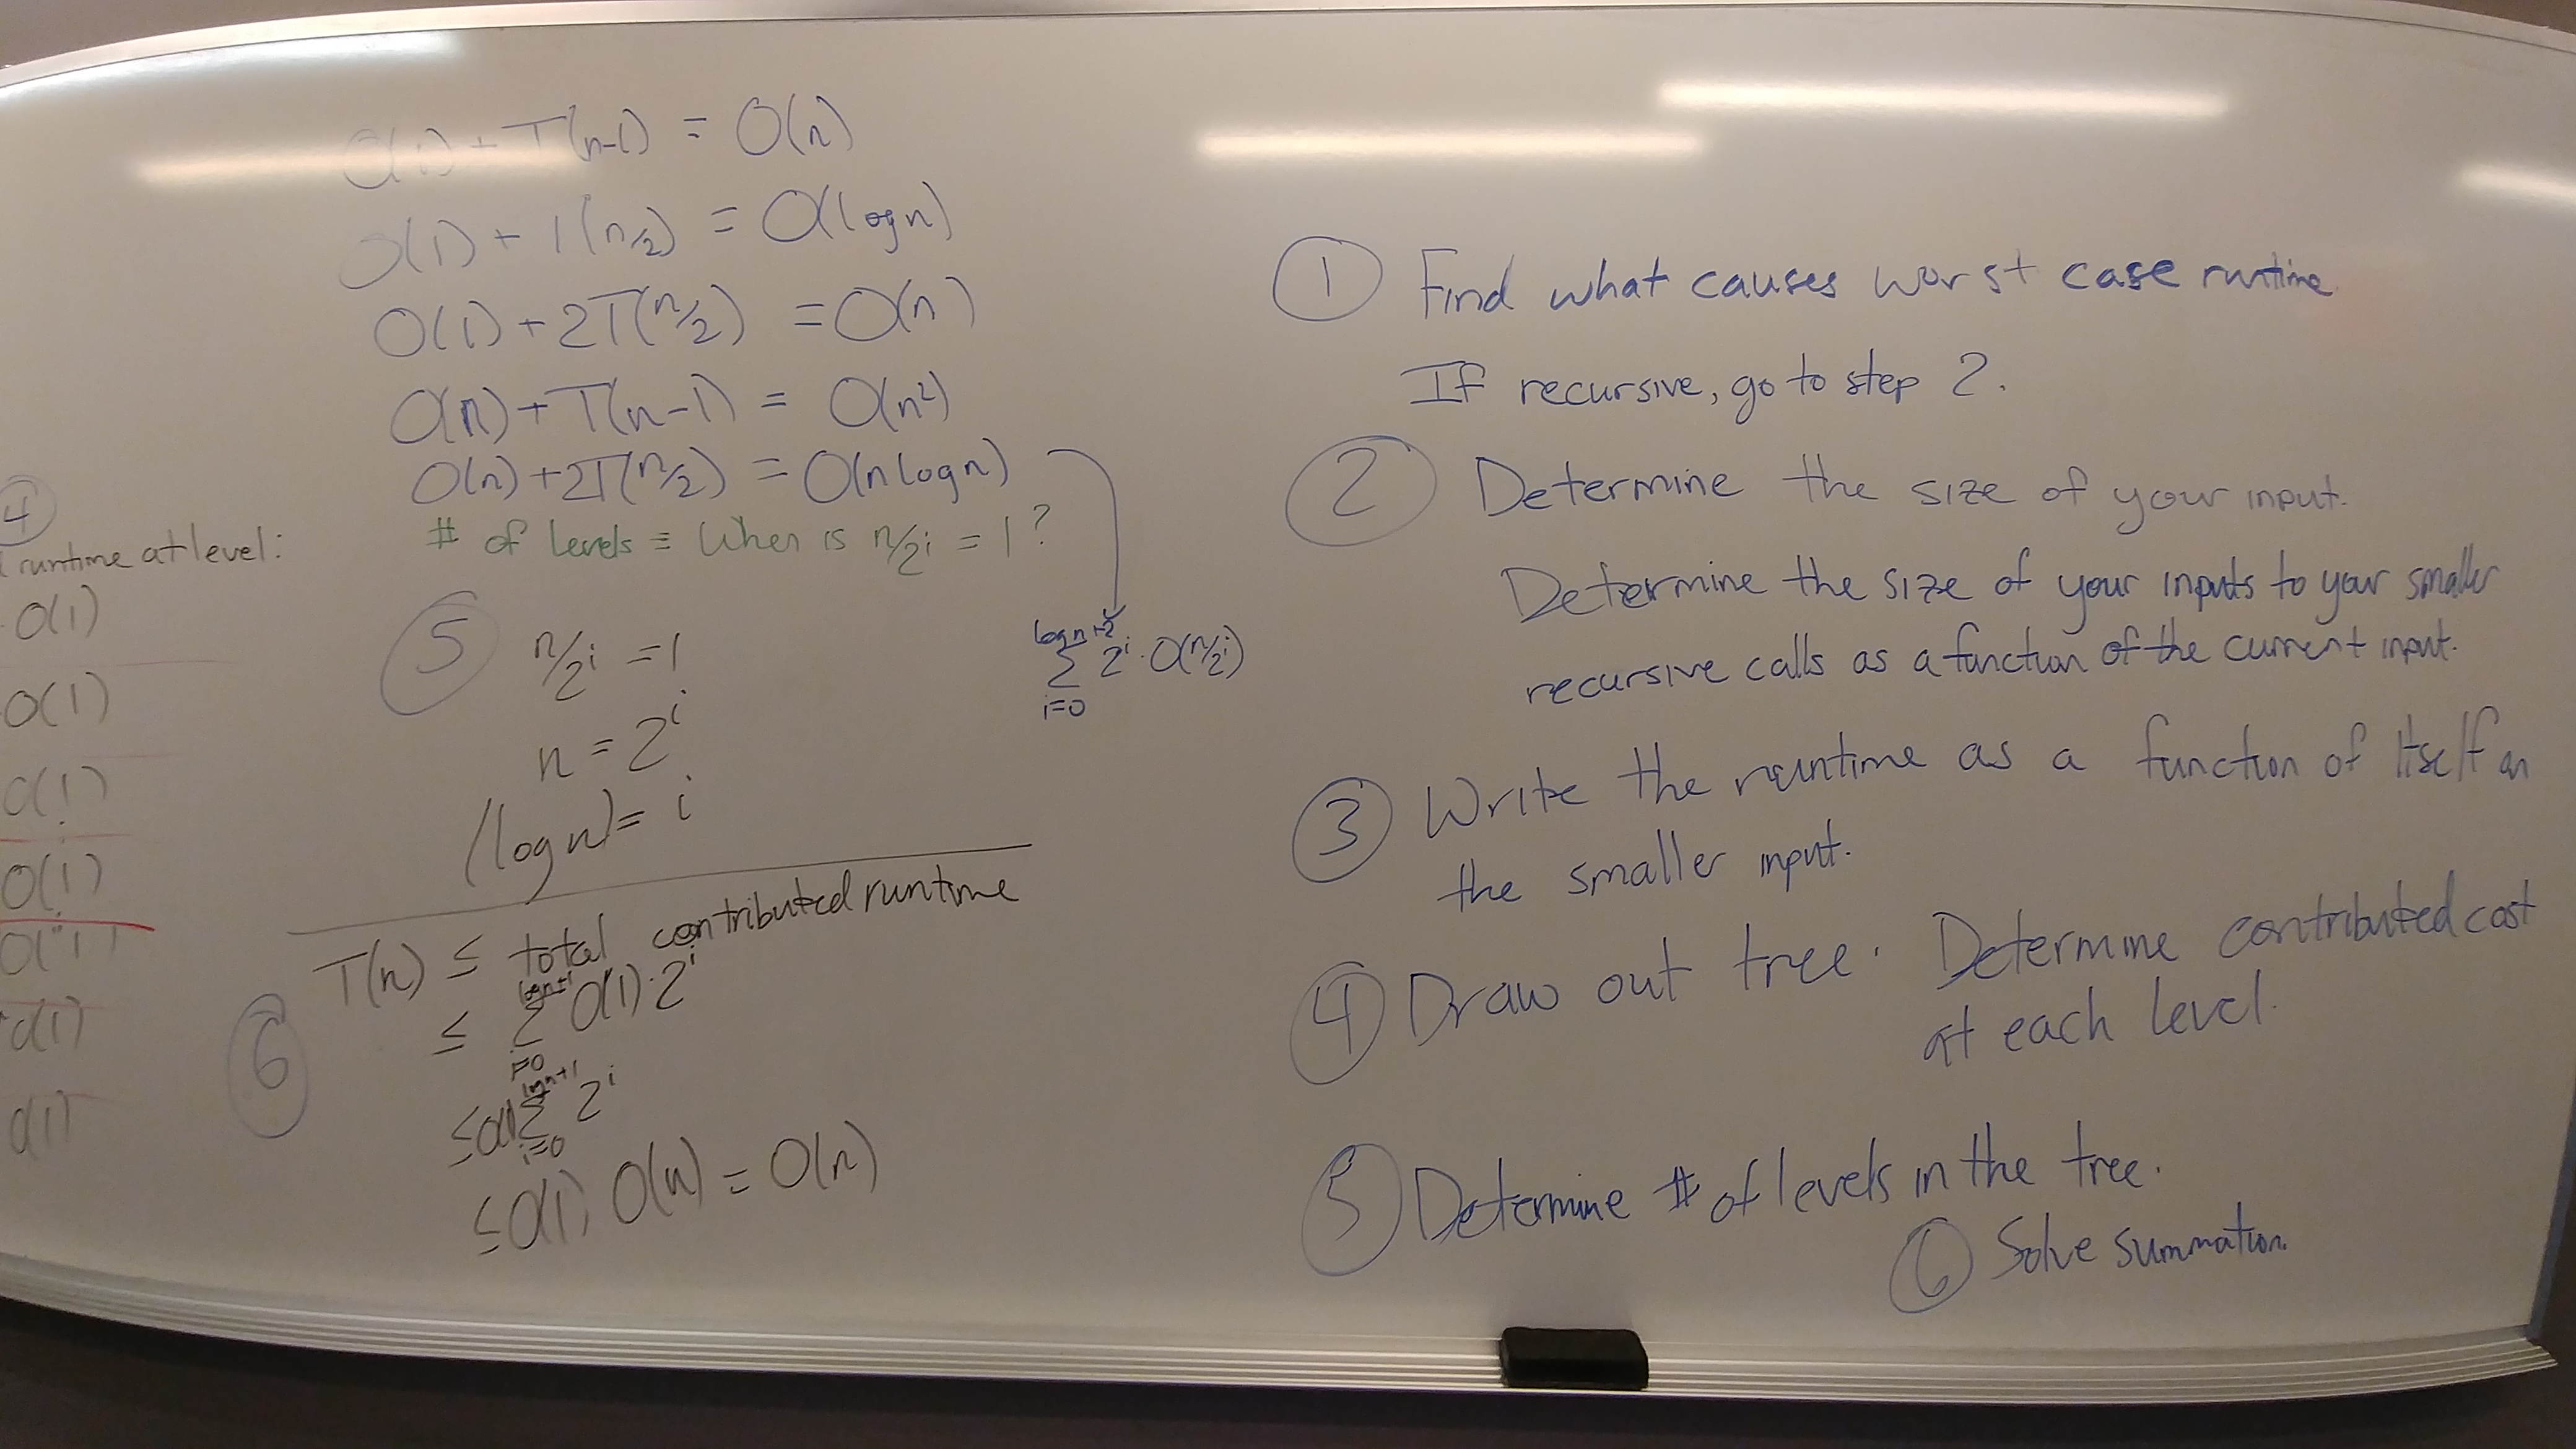 4
runtime at level:
O(1)
O(1)
O(1)
O(1)
O(1)
O(1)
O(1)
O(1) + T(n-1) = O(n)
O(1) + T(n/2) = O(log n)
O(1) + 2T(n/2) = O(n)
O(n) + T(n-1) = O(n²)
O(n) + 2T(n/2) = O(n log n)
# of levels ≡ When is n/2^i = 1?
5
n/2^i = 1
n = 2^i
(log n) = i
log n +2
Σ 2^i · O(n/2^i)
i=0
6
T(n) ≤ total contributed runtime
log n+1
≤ Σ O(1)·2^i
i=0
log n+1
≤ O(1) Σ 2^i
i=0
≤ O(1) O(n) = O(n)
1 Find what causes worst case runtime
If recursive, go to step 2.
2 Determine the size of your input.
Determine the size of your inputs to your smaller
recursive calls as a function of the current input.
3 Write the runtime as a function of itself on
the smaller input.
4 Draw out tree. Determine contributed cost
at each level.
5 Determine # of levels in the tree.
6 Solve summation.